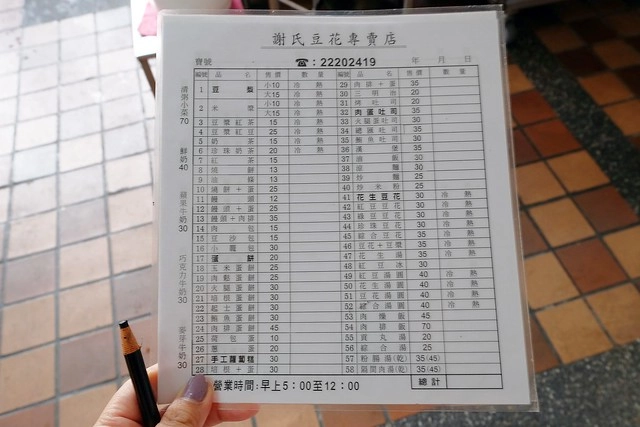 謝氏豆花專賣店
寶號
☎：22202419
年 月 日
編號 品 名 售價 數量
1 豆漿 小10 冷 熱
大15 冷 熱
2 米漿 小10 冷 熱
大15 冷 熱
3 豆漿紅茶 15 冷 熱
4 豆漿紅豆 25 冷 熱
5 奶茶 15 冷 熱
6 珍珠奶茶 20 冷 熱
7 紅茶 15
8 燒餅 13
9 油條 13
10 燒餅+蛋 25
11 饅頭 12
12 饅頭+蛋 25
13 饅頭+肉排 35
14 肉包 15
15 豆沙包 15
16 小籠包 30
17 蛋餅 20
18 玉米蛋餅 25
19 肉鬆蛋餅 25
20 火腿蛋餅 30
21 培根蛋餅 30
22 起士蛋餅 30
23 鮪魚蛋餅 30
24 肉排蛋餅 45
25 荷包蛋 10
26 蔥蛋 20
27 手工蘿蔔糕 30
28 培根+蛋 30
編號 品 名 售價 數量
29 肉排+蛋 35
30 三明治 20
31 烤吐司 20
32 肉蛋吐司 35
33 火腿蛋吐司 30
34 總匯吐司 35
35 鮪魚吐司 30
36 漢堡 35
37 30
38 涼麵 30
39 炒麵 25
40 炒米粉 25
41 花生豆花 30 冷 熱
42 紅豆豆花 30 冷 熱
43 綠豆豆花 30 冷 熱
44 珍珠豆花 30 冷 熱
45 綜合豆花 35 冷 熱
46 豆花+豆漿 35 冷 熱
47 花生湯 35 冷 熱
48 紅豆冰 30
49 紅豆湯圓 40 冷 熱
50 花生湯圓 40 冷 熱
51 豆花湯圓 40 冷 熱
52 綜合湯圓 40 冷 熱
53 肉燥飯 45
54 肉排飯 70
55 貢丸湯 20
56 綜合湯 25
57 粉腸湯(乾) 35(45)
58 隔間肉湯(乾) 35(45)
總計
清粥小菜 70
鮮奶 40
蘋果牛奶 30
巧克力牛奶 30
麥芽牛奶 30
營業時間:早上5：00至12：00